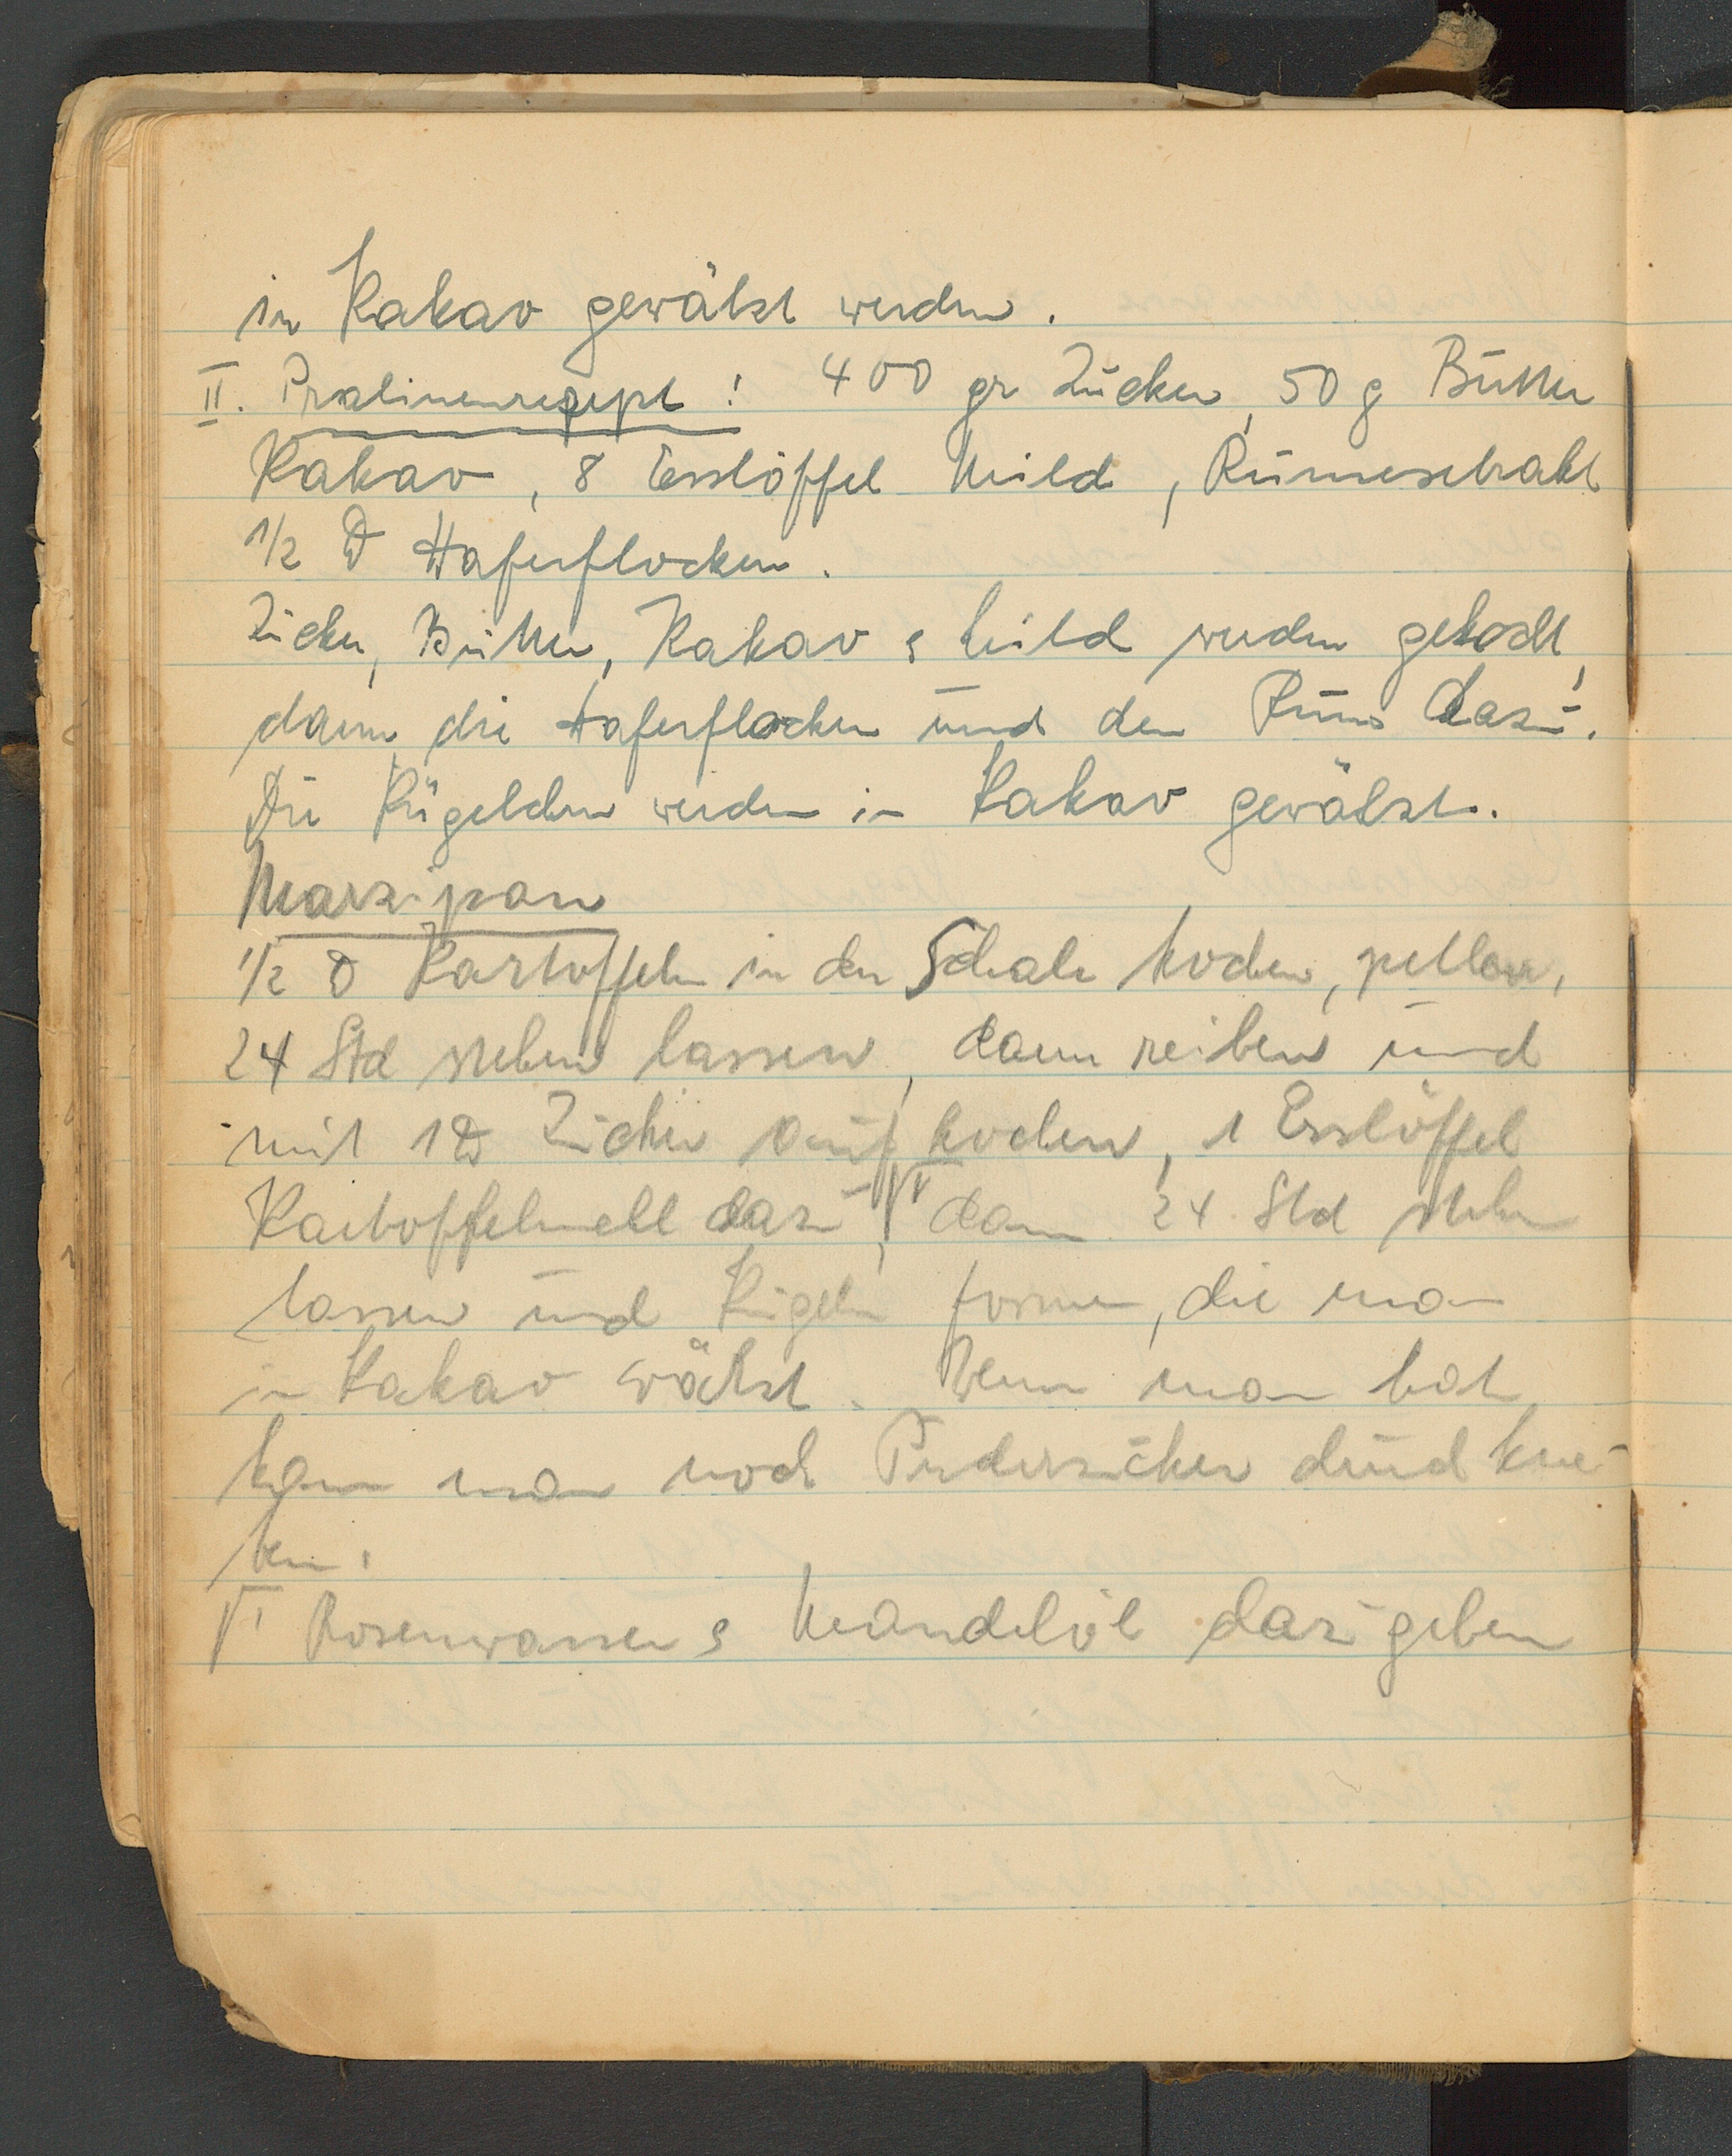 in Kakao gewälzt werden.
II. Pralinenrezept! 400 gr Zucker, 50 g Butter
Kakao, 8 Esslöffel Milch, Rumextrakt
1/2 ℔ Haferflocken.
Zucker, Butter, Kakao & Milch werden gekocht,
dann die Haferflocken und den Rum dazu.
Die Kügelchen werden in Kakao gewälzt.
Marzipan
1/2 ℔ Kartoffeln in der Schale kochen, pellen,
24 Std stehen lassen, dann reiben und
mit 1 ℔ Zucker aufkochen, 1 Esslöffel
Kartoffelmehl dazu, dann 24 Std stehen
lassen und Kugeln formen, die man
in Kakao wälzt. Wenn man hat
kann man noch Puderzucker durchkne-
ten.
Rosenwasser & Mandelöl dazugeben